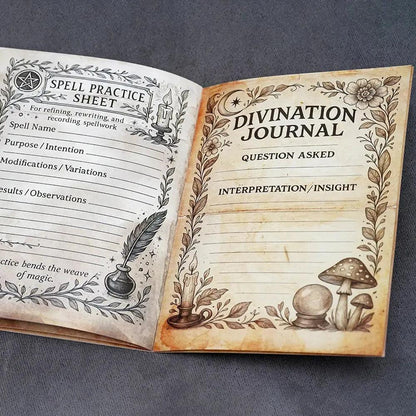 SPELL PRACTICE
SHEET
For refining, rewriting, and
recording spellwork
Spell Name
Purpose / Intention
Modifications / Variations
esults / Observations
ctice bends the weave
of magic.
DIVINATION
JOURNAL
QUESTION ASKED
INTERPRETATION / INSIGHT